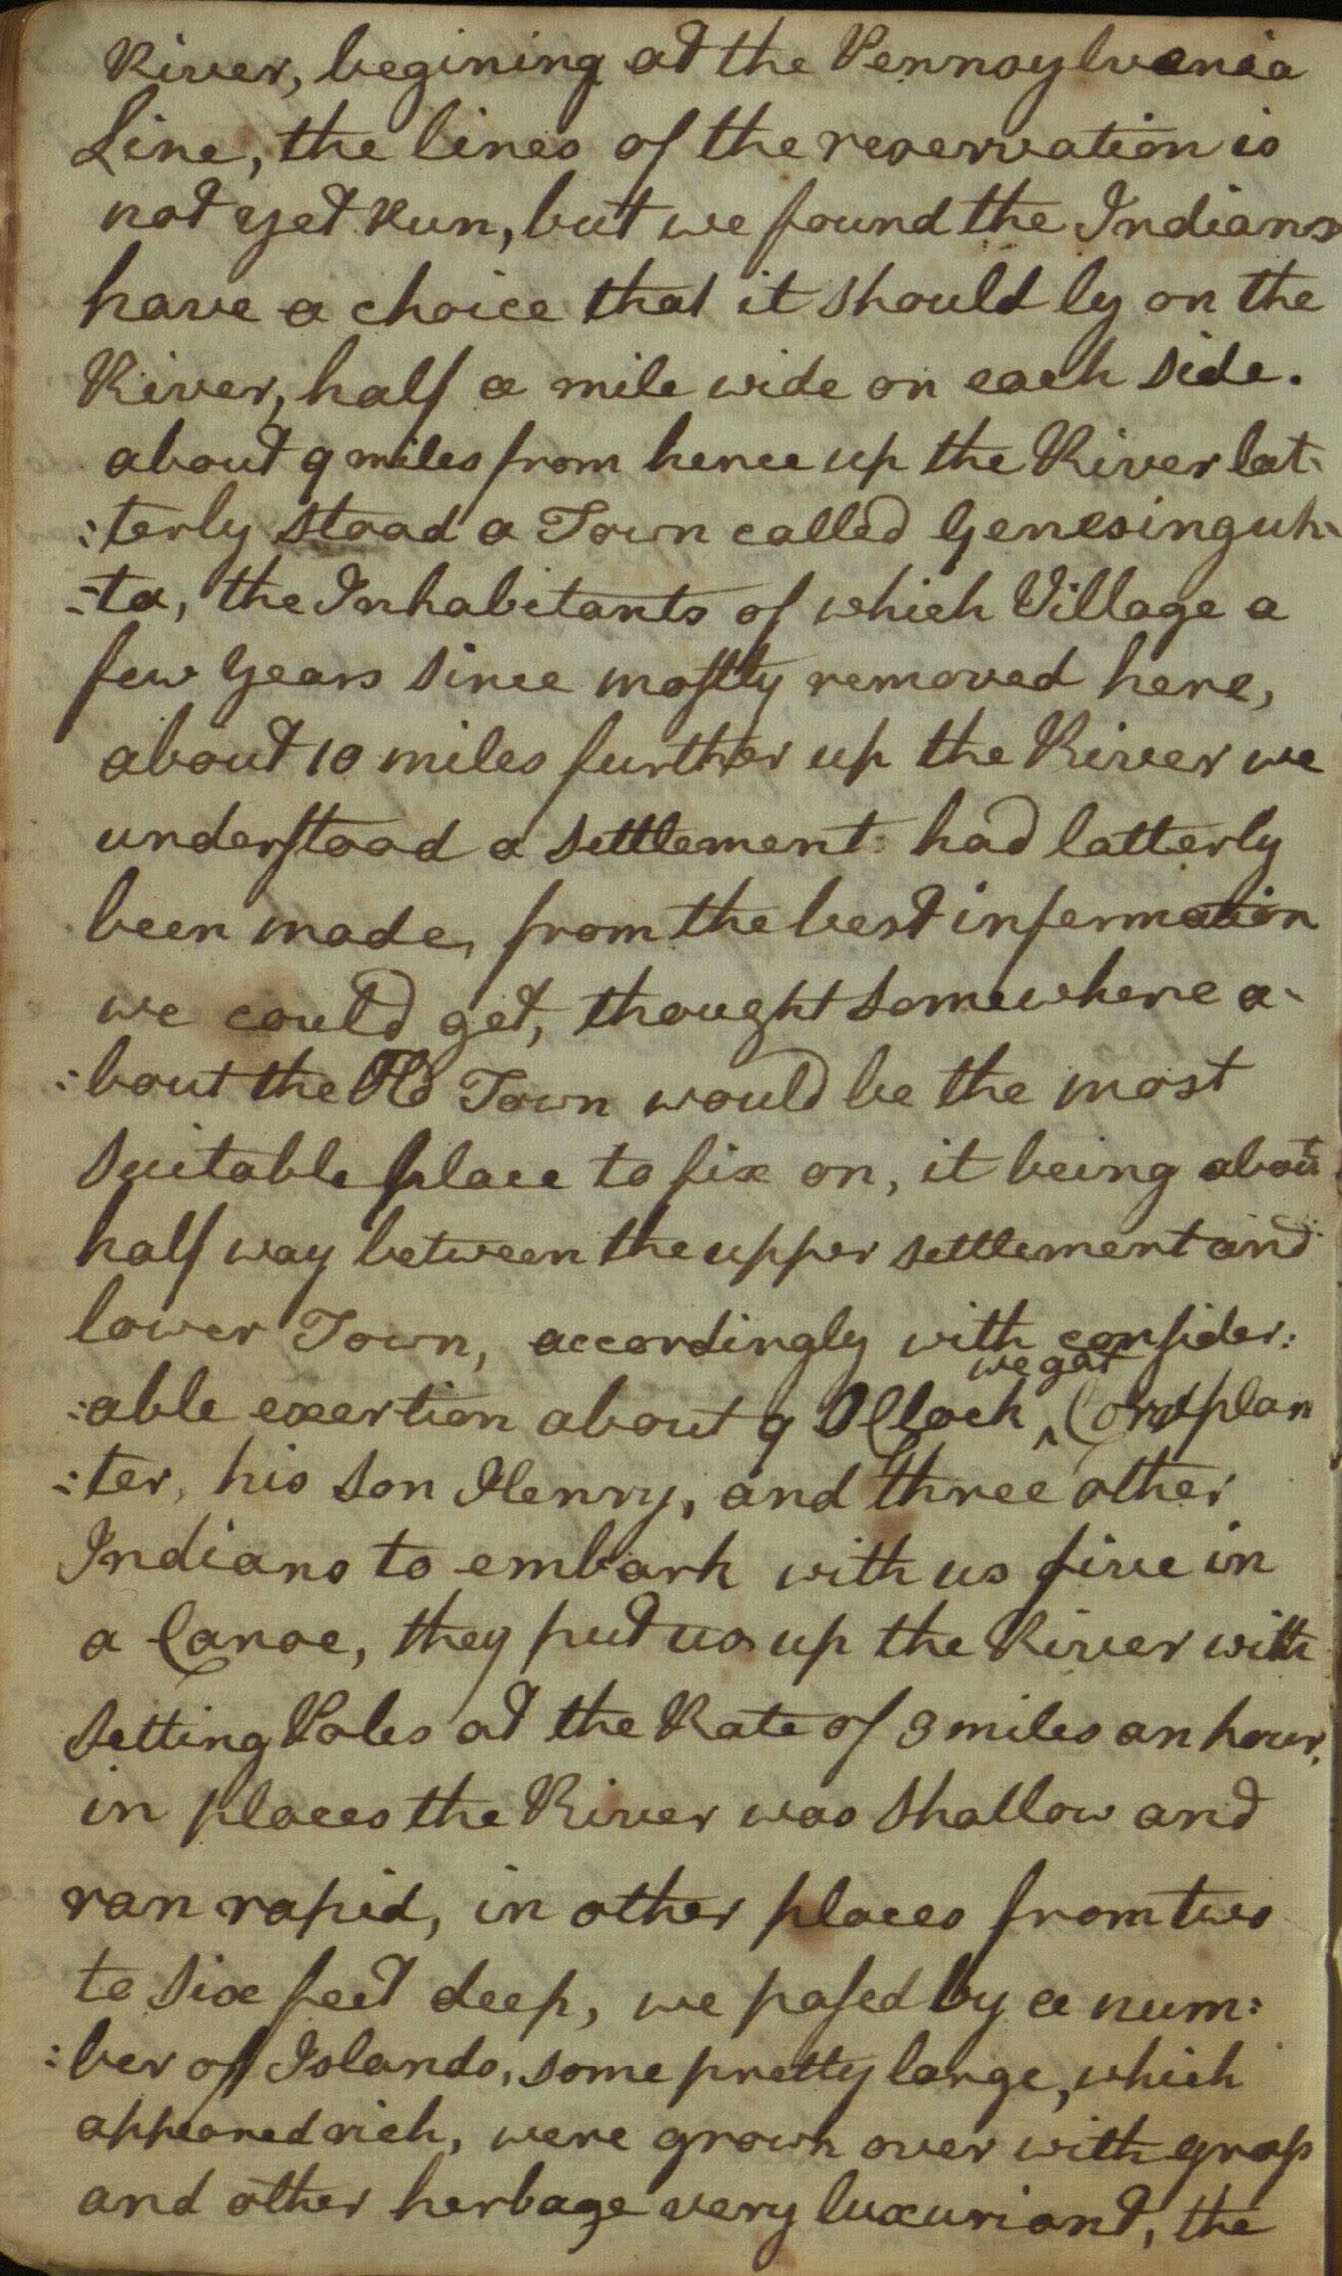 River, begining at the Pennsylvania
Line, the lines of the reservation is
not yet Run, but we found the Indians
have a choice that it should ly on the
River, half a mile wide on each side.
about 9 miles from hence up the River lat-
:terly stood a Town called Genesinguh-
-ta, the Inhabitants of which Village a
few Years since mostly removed here,
about 10 miles further up the River we
understood a settlement had latterly
been made, from the best information
we could get, thought somewhere a-
:bout the Old Town would be the most
suitable place to fix on, it being about
half way between the upper settlement and
lower Town, accordingly with consider:
:able exertion about 9 OClock ^ we got Cornplan
:ter, his son Henry, and three other
Indians to embark with us five in
a Canoe, they put us up the River with
setting Poles at the Rate of 3 miles an hour,
in places the River was shallow and
ran rapid, in other places from two
to six feet deep, we passed by a num:
:ber of Islands, some pretty large, which
appeared rich, were grown over with grass
and other herbage very luxuriant, the